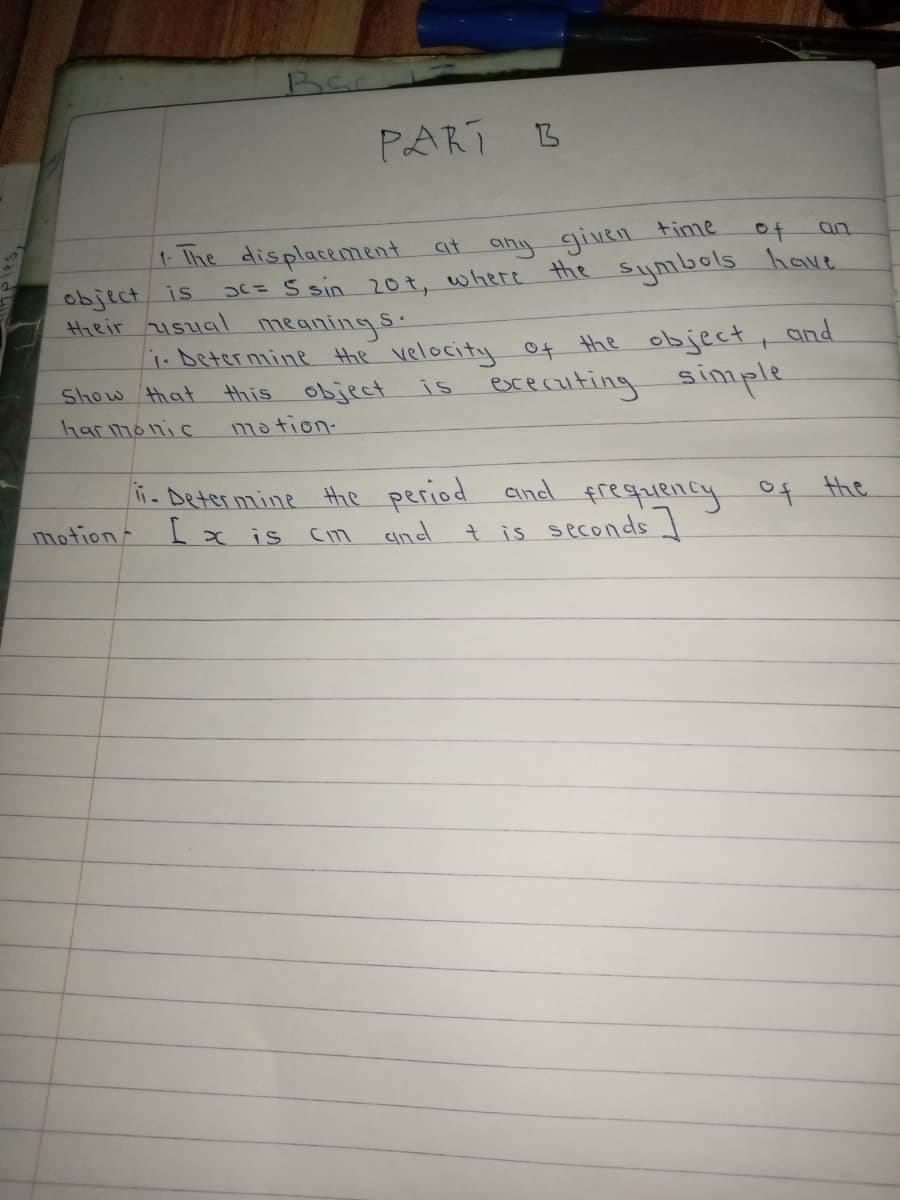 PART B
1. The displacement at any given time of an
object is x = 5 sin 20t, where the symbols have
their usual meanings.
i. Determine the velocity of the object, and
Show that this object is executing simple
harmonic motion.
ii. Determine the period and frequency of the
motion. [x is cm and t is seconds]